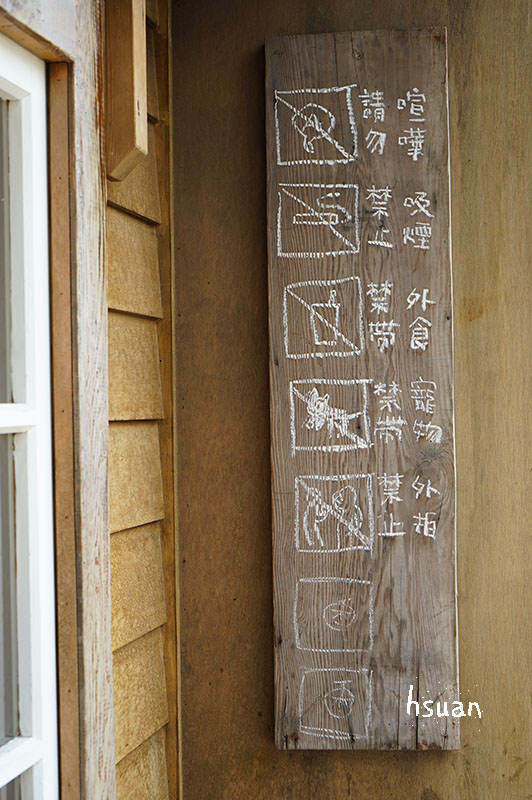 請勿喧嘩
禁止吸煙
禁帶外食
禁帶寵物
禁止外拍
hsuan